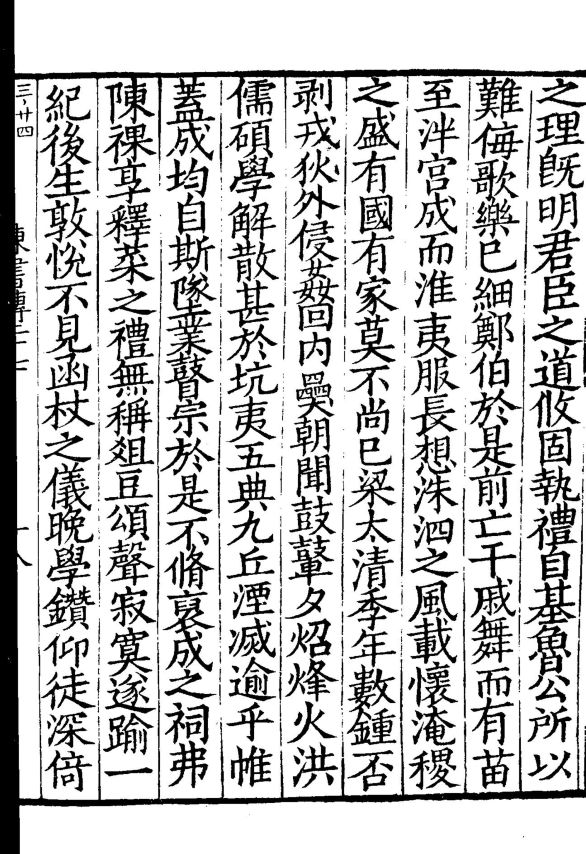 之理旣明君臣之道攸固執禮自基魯公所以
難侮歌樂已細鄭伯於是前亡干戚舞而有苗
至泮宫成而淮夷服長想洙泗之風載懷淹稷
之盛有國有家莫不尚已梁太清季年數鍾否
剥戎狄外侵姦回内奰朝聞鼓鼙夕炤烽火洪
儒碩學解散甚於坑夷五典九丘湮滅逾乎帷
蓋成均自斯墜業瞽宗於是不脩裒成之祠弗
陳祼享釋菜之禮無稱俎豆頌聲寂寞遂踰一
紀後生敦悅不見函杖之儀晚學鑽仰徒深倚
三卄四